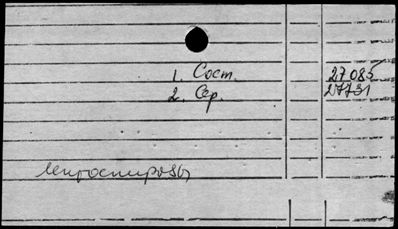 1. Сост. 27085
2. Сер. 27731
лептоспирозы